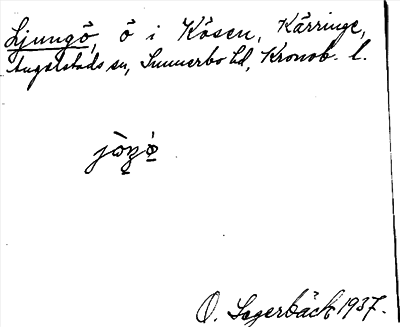 Ljungö, ö i Kösen, Kärringe,
Angelstads sn, Sunnerbo hd, Kronob. l.
O. Lagerbäck 1937.